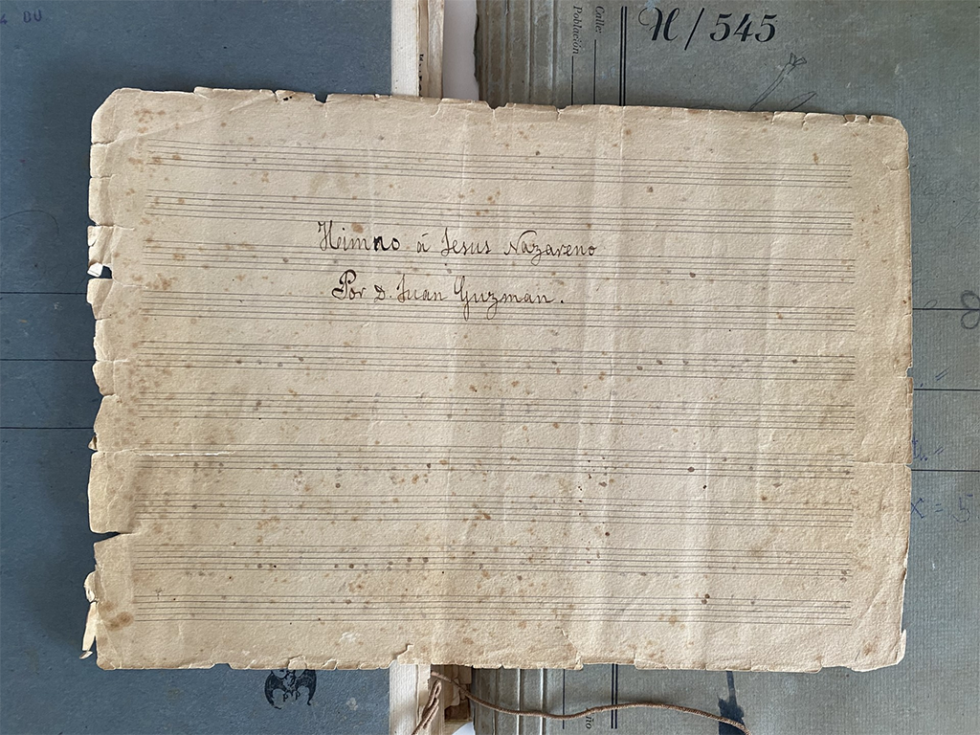 BU
Calle:
Población
H/545
Heimno á Jesus Nazareno
Por D. Juan Guzman.
X = 5